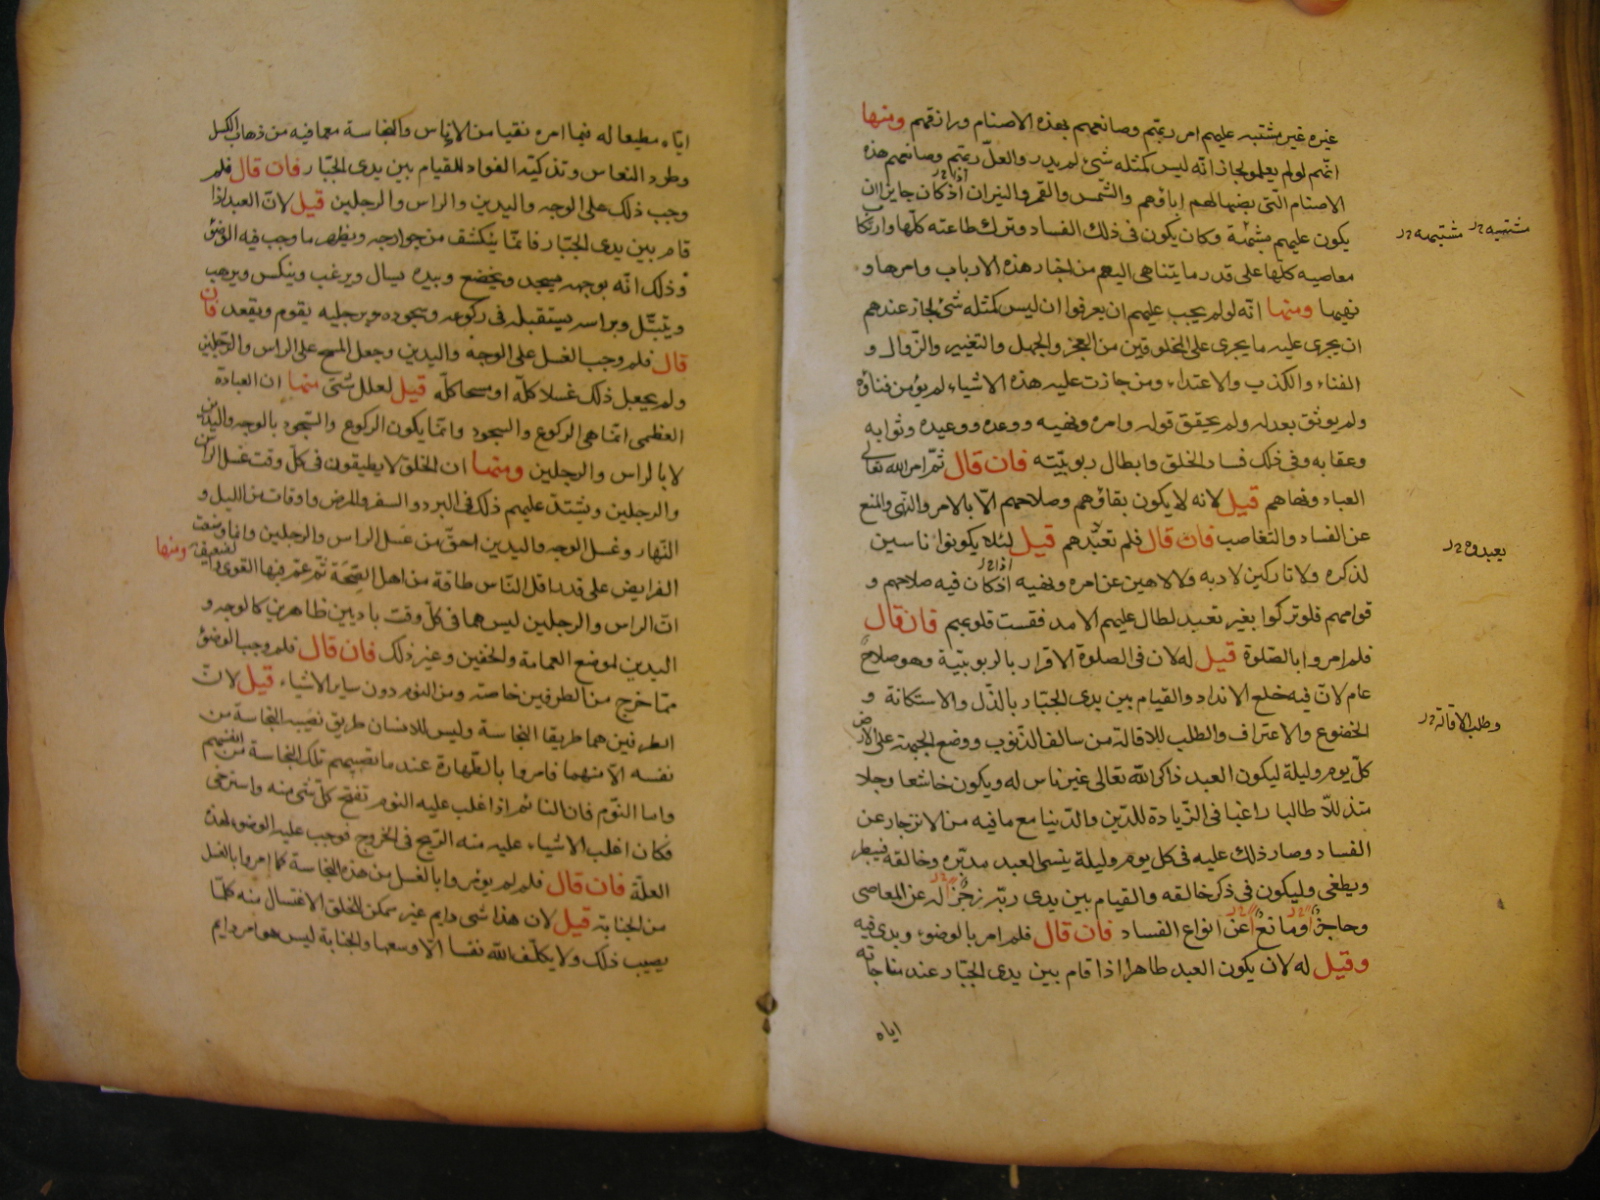 غيره غير مشتبه عليهم امر ربهم وصانعهم بهذه الاصنام ورازقهم ومنها
انهم لو لم يعلموا لجاز انه ليس كمثله شئ لم يدروا لعلّ ربهم وصانعهم هذه
الاصنام التى نصبها لهم اباؤهم والشمس والقمر والنيران اذ كان جايزا ان
يكون عليهم مشتبه وكان يكون فى ذلك الفساد وترك طاعته كلها وارتكاب
معاصيه كلها على قدر ما يتناهى اليهم من اخبار هذه الارباب وامرها و
نهيها ومنها انه لو لم يجب عليهم ان يعرفوا ان ليس كمثله شئ لجاز عندهم
ان يجرى عليه ما يجرى على المخلوقين من العجز والجهل والتغيير والزوال و
الفناء والكذب والاعتداء ومن جازت عليه هذه الاشياء لم يؤمن فناؤه
ولم يوثق بعدله ولم يحقق قوله وامره ونهيه ووعده ووعيده وثوابه
وعقابه وفى ذلك فساد الخلق وابطال ربوبيّته فان قال لم امر الله تعالى
العباد ونهاهم قيل لانه لا يكون بقاؤهم وصلاحهم الّا بالامر والنهى والمنع
عن الفساد والتغاصب فان قال فلم تعبّدهم قيل لئلا يكونوا ناسين
لذكره ولا تاركين لادبه ولا لاهين عن امره ونهيه اذ كان فيه صلاحهم و
قوامهم فلو تركوا بغير تعبد لطال عليهم الامد فقست قلوبهم فان قال
فلم امروا بالصلوة قيل له لان فى الصلوة الاقرار بالربوبيّة وهو صلاح
عام لانّ فيه خلع الانداد والقيام بين يدى الجبّار بالذّل والاستكانة و
الخضوع والاعتراف والطلب للاقالة من سالف الذنوب ووضع الجبهة على الارض
كلّ يوم وليلة ليكون العبد ذاكر الله تعالى غير ناس له ويكون خاشعا وجلا
متذللّا طالبا راغبا فى الزيادة للدّين والدّنيا مع ما فيه من الانزجار عن
الفساد وصار ذلك عليه فى كل يوم وليلة ينسى العبد مدبّره وخالقه فيبطر
ويطغى وليكون فى ذكر خالقه والقيام بين يدى ربّه زجرا له عن المعاصى
وحاجزا ومانعا عن انواع الفساد فان قال فلم امر بالوضوء وبدى فيه
وقيل له لان يكون العبد طاهرا اذا قام بين يدى الجبّار عند مناجاته
اياه
مشتبه
مشتبهه
يعبدوه
وطلب الاقالة
ايّاه مطيعا له فيما امره نقيا من الادناس والنجاسة مع ما فيه من ذهاب الكسل
وطرد النعاس وتذكية الفواد للقيام بين يدى الجبّار فان قال فلم
وجب ذلك على الوجه واليدين والراس والرجلين قيل لانّ العبد اذا
قام بين يدى الجبّار فانّما ينكشف من جوارحه ويظهر ما وجب فيه الوضؤ
وذلك انّه بوجهه يسجد ويخضع وبيده يسال ويرغب وينكس ويرهب
ويتبتّل وبراسه يستقبله فى ركوعه وسجوده وبرجليه يقوم ويقعد فان
قال فلم وجب الغسل على الوجه واليدين وجعل المسح على الراس والرجلين
ولم يجعل ذلك غسلا كلّه او مسحا كلّه قيل لعلل شتّى منها ان العبادة
العظمى انما هى الركوع والسجود وانّما يكون الركوع والسجود بالوجه واليدين
لا بالراس والرجلين ومنها ان الخلق لا يطيقون فى كلّ وقت غسل الراس
والرجلين ويشتدّ عليهم ذلك فى البرد والسفر والمرض واوقات من الليل و
النّهار وغسل الوجه واليدين احقّ من غسل الراس والرجلين وانما وضعت
الفرايض على قدر اقل النّاس طاقة من اهل الصحّة ثم عمّ فيها القوى والضعيف ومنها
انّ الراس والرجلين ليس هما فى كلّ وقت باديين ظاهرين كالوجه و
اليدين لموضع العمامة والخفين وغير ذلك فان قال فلم وجب الوضؤ
ممّا خرج من الطرفين خاصة ومن النوم دون ساير الاشياء قيل لانّ
الطرفين هما طريقا النجاسة وليس للانسان طريق تصيبه النجاسة من
نفسه الّا منهما فامروا بالطّهارة عند ما تصيبهم تلك النجاسة من انفسهم
واما النّوم فان النائم اذا غلب عليه النوم تفتح كلّ شئ منه واسترخى
فكان اغلب الاشياء عليه منه الرّيح فى الخروج فوجب عليه الوضوء لهذه
العلّة فان قال فلم لم يومروا بالغسل من هذه النجاسة كما امروا بالغسل
من الجنابة قيل لان هذا شئ دايم غير ممكن للخلق الاغتسال منه كلّما
يصيب ذلك ولا يكلّف الله نفسا الّا وسعها والجنابة ليس هو امر دايم